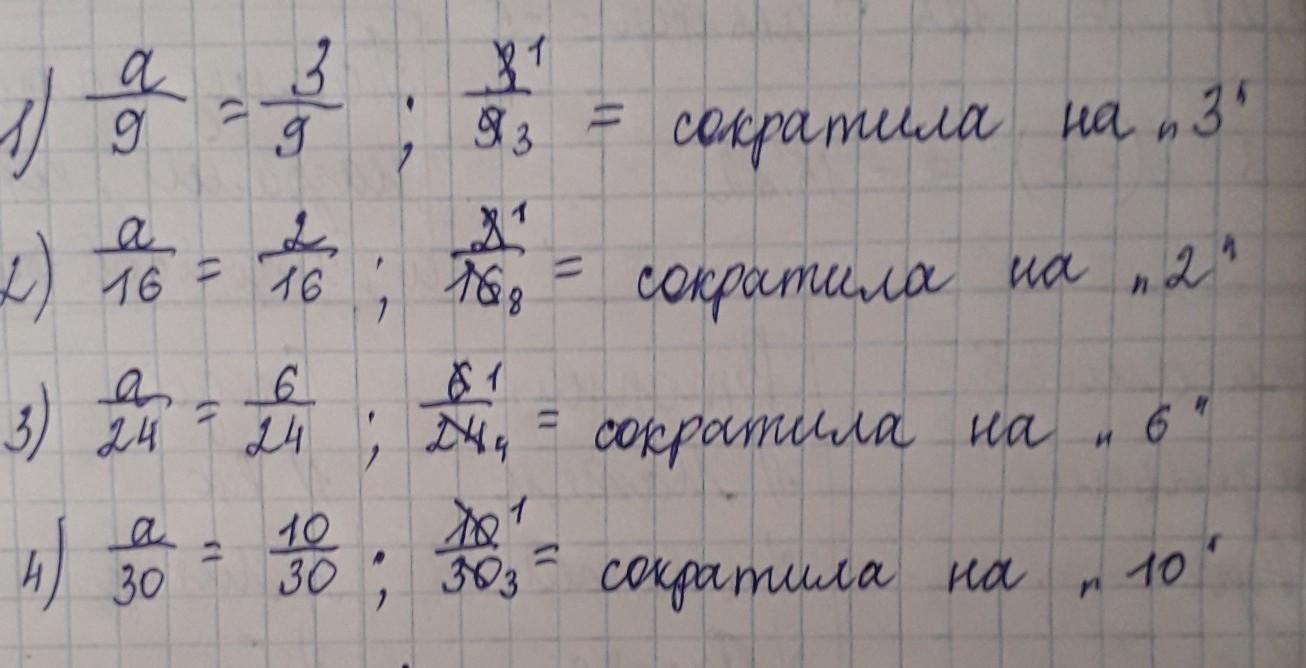 1) a/9 = 3/9 ; 3 1/9 3 = сократила на „3“
2) a/16 = 2/16 ; 2 1/16 8 = сократила на „2“
3) a/24 = 6/24 ; 6 1/24 4 = сократила на „6“
4) a/30 = 10/30 ; 10 1/30 3 = сократила на „10“